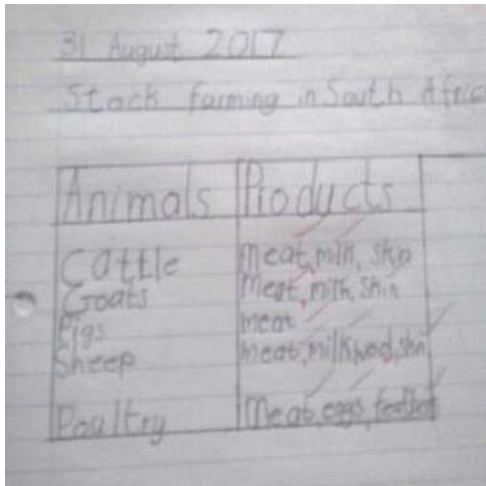 31 August 2017
Stock farming in South Afric
Animals Products
Cattle meat, milk, skin
Goats Meat, milk, skin
Pigs meat
Sheep meat, milk, wool, skin
Poultry Meat, eggs,